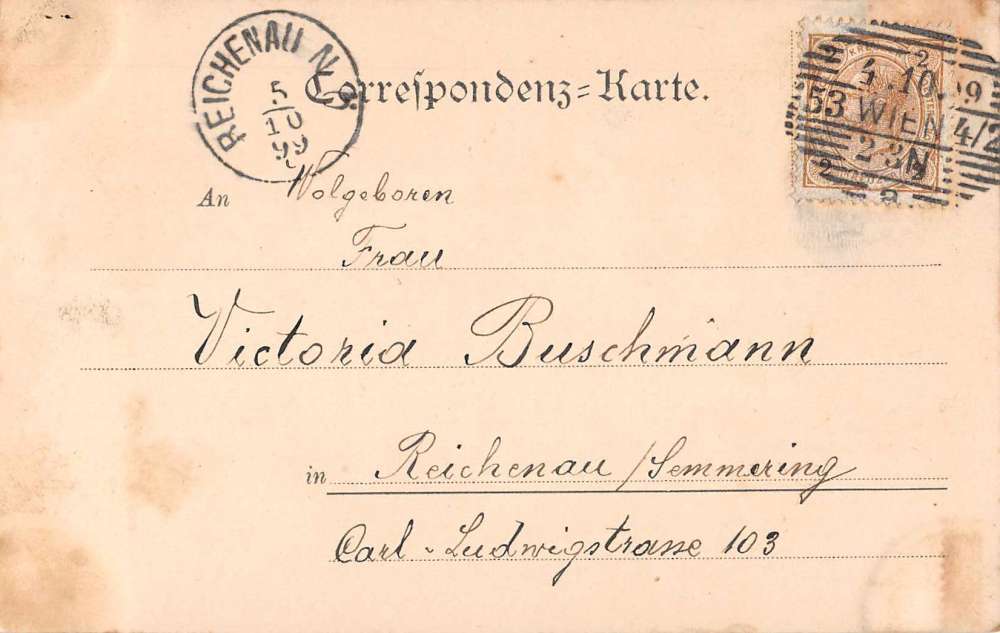 REICHENAU N.Ö.
5
10
99
Correspondenz-Karte.
2 2
4.10.99
53 WIEN 4/2
2-3N
2
a.
An Wolgeboren
Frau
Victoria Buschmann
in Reichenau /Semmering
Carl-Ludwigstrasse 103